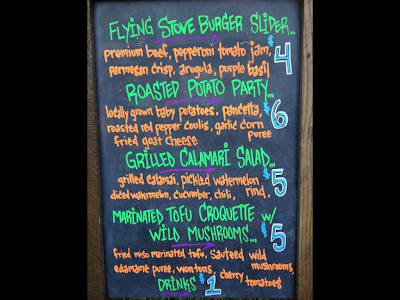 FLYING STOVE BURGER SLIDER...
premium beef, pepperoni tomato jam, $4
parmesan crisp, arugula, purple basil
ROASTED POTATO PARTY...
locally grown baby potatoes, pancetta, $6
roasted red pepper coulis, garlic corn puree
fried goat cheese
GRILLED CALAMARI SALAD...
grilled calamari, pickled watermelon rind, $5
diced watermelon, cucumber, chili,
MARINATED TOFU CROQUETTE w/
WILD MUSHROOMS... $5
fried miso marinated tofu, sauteed wild mushrooms,
edamame puree, wontons, cherry tomatoes
DRINKS $1